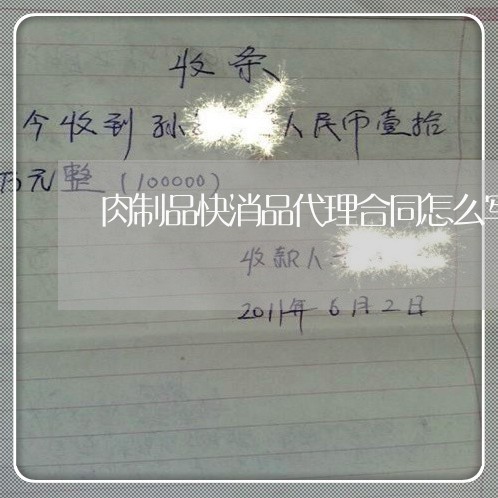 收条
今收到孙 人民币壹拾
万元整（100000）
肉制品快消品代理合同怎么写
收款人
2011年6月2日